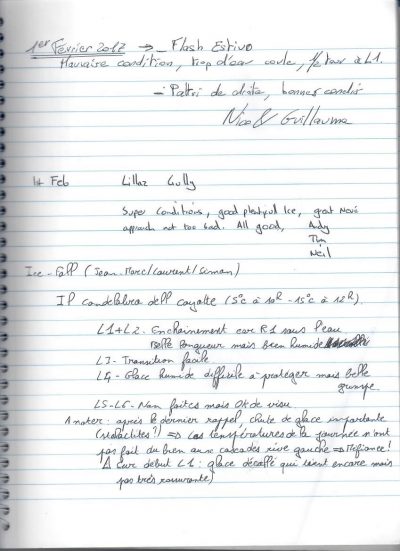 1er Février 2012 → - Flash Estivo
Mauvaise condition, trop d'eau coule, retour à L1.
- Pattri de droite, bonnes condis
Nico & Guillaume
1st Feb Lillaz Gully
Super Conditions, good plentyful Ice, great Nevé
approach not too bad. All good, Andy
Tim
Neil
Ice-Fall (Jean-Marc/Laurent/Simon)
Il candelabra dell coyotte (5°c à 10H -15°c à 12H).
L1+L2- Enchainement car R1 sous l'eau
Belle longueur mais bien humide
L3- Transition facile
L4- Glace humide difficile à protéger mais belle
grimpe
L5-L6- Non faites mais OK de visu
A noter: après le dernier rappel, chute de glace importante
(stalactites?) ⇒ Les températures de la journée n'ont
pas fait du bien aux cascades rive gauche ⇒ Méfiance!
Δ Sur début L1: glace décollé qui tient encore mais
pas très rassurante)